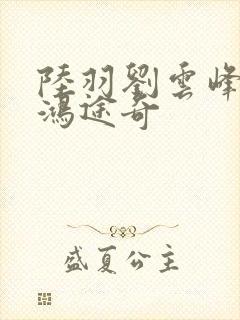 陸羽劉雲峰
鴻途奇
盛夏公主